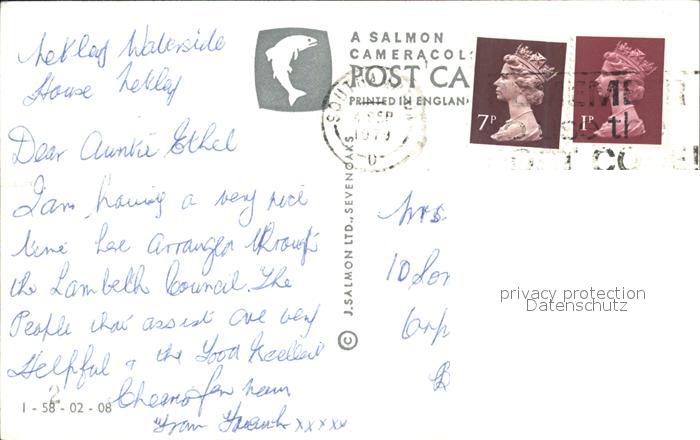 Netley Waterside
House Netley
Dear Auntie Ethel
I am having a very nice
time here arranged through
the Lambeth Council. The
People that assist are very
Helpful & the Food Excellent
Cheerio for now
From Frank xxxxx
1 - 58 - 02 - 08
2
A SALMON
CAMERACOL
POST CA
PRINTED IN ENGLAN
SOUTH
4 SEP
1979
D
7P
1P
© J. SALMON LTD., SEVENOAKS
Mrs
10
privacy protection
Datenschutz